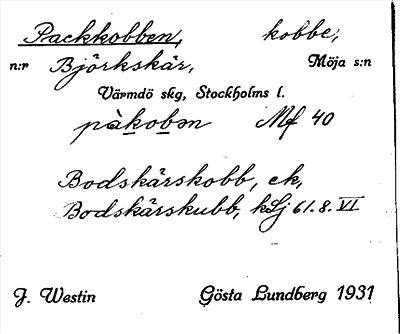 Packkobben, kobbe,
n:r Björkskär, Möja s:n
Värmdö skg, Stockholms l.
pàkobən Mf 40
Bodskärskobb, ek,
Bodskärskubb, kSj 61.8.VI
J. Westin Gösta Lundberg 1931